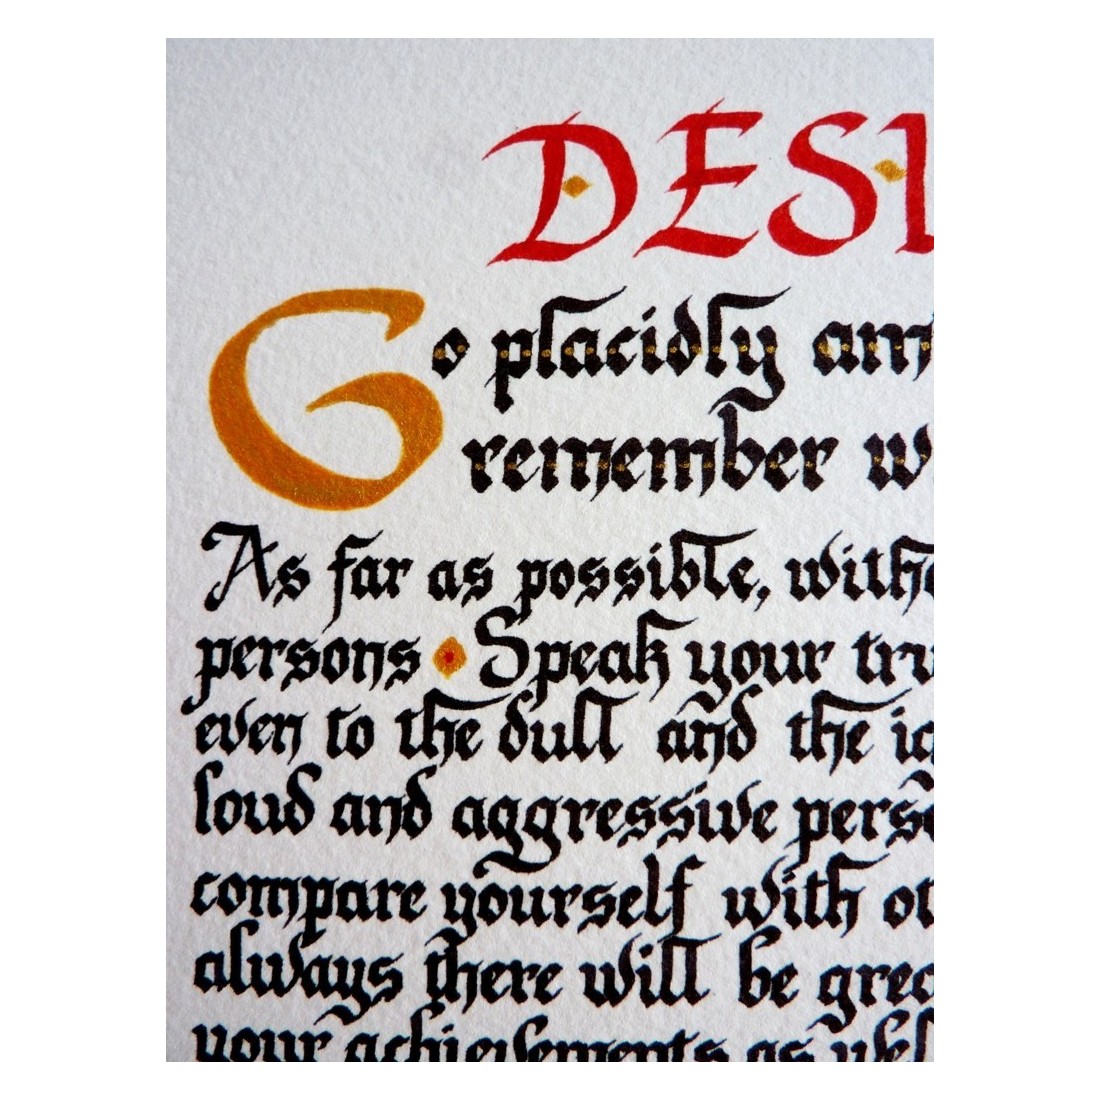 DESI
Go placidly am
remember w
As far as possible, witho
persons • Speak your tru
even to the dull and the ig
loud and aggressive perso
compare yourself with ot
always there will be grea
your achievements as well